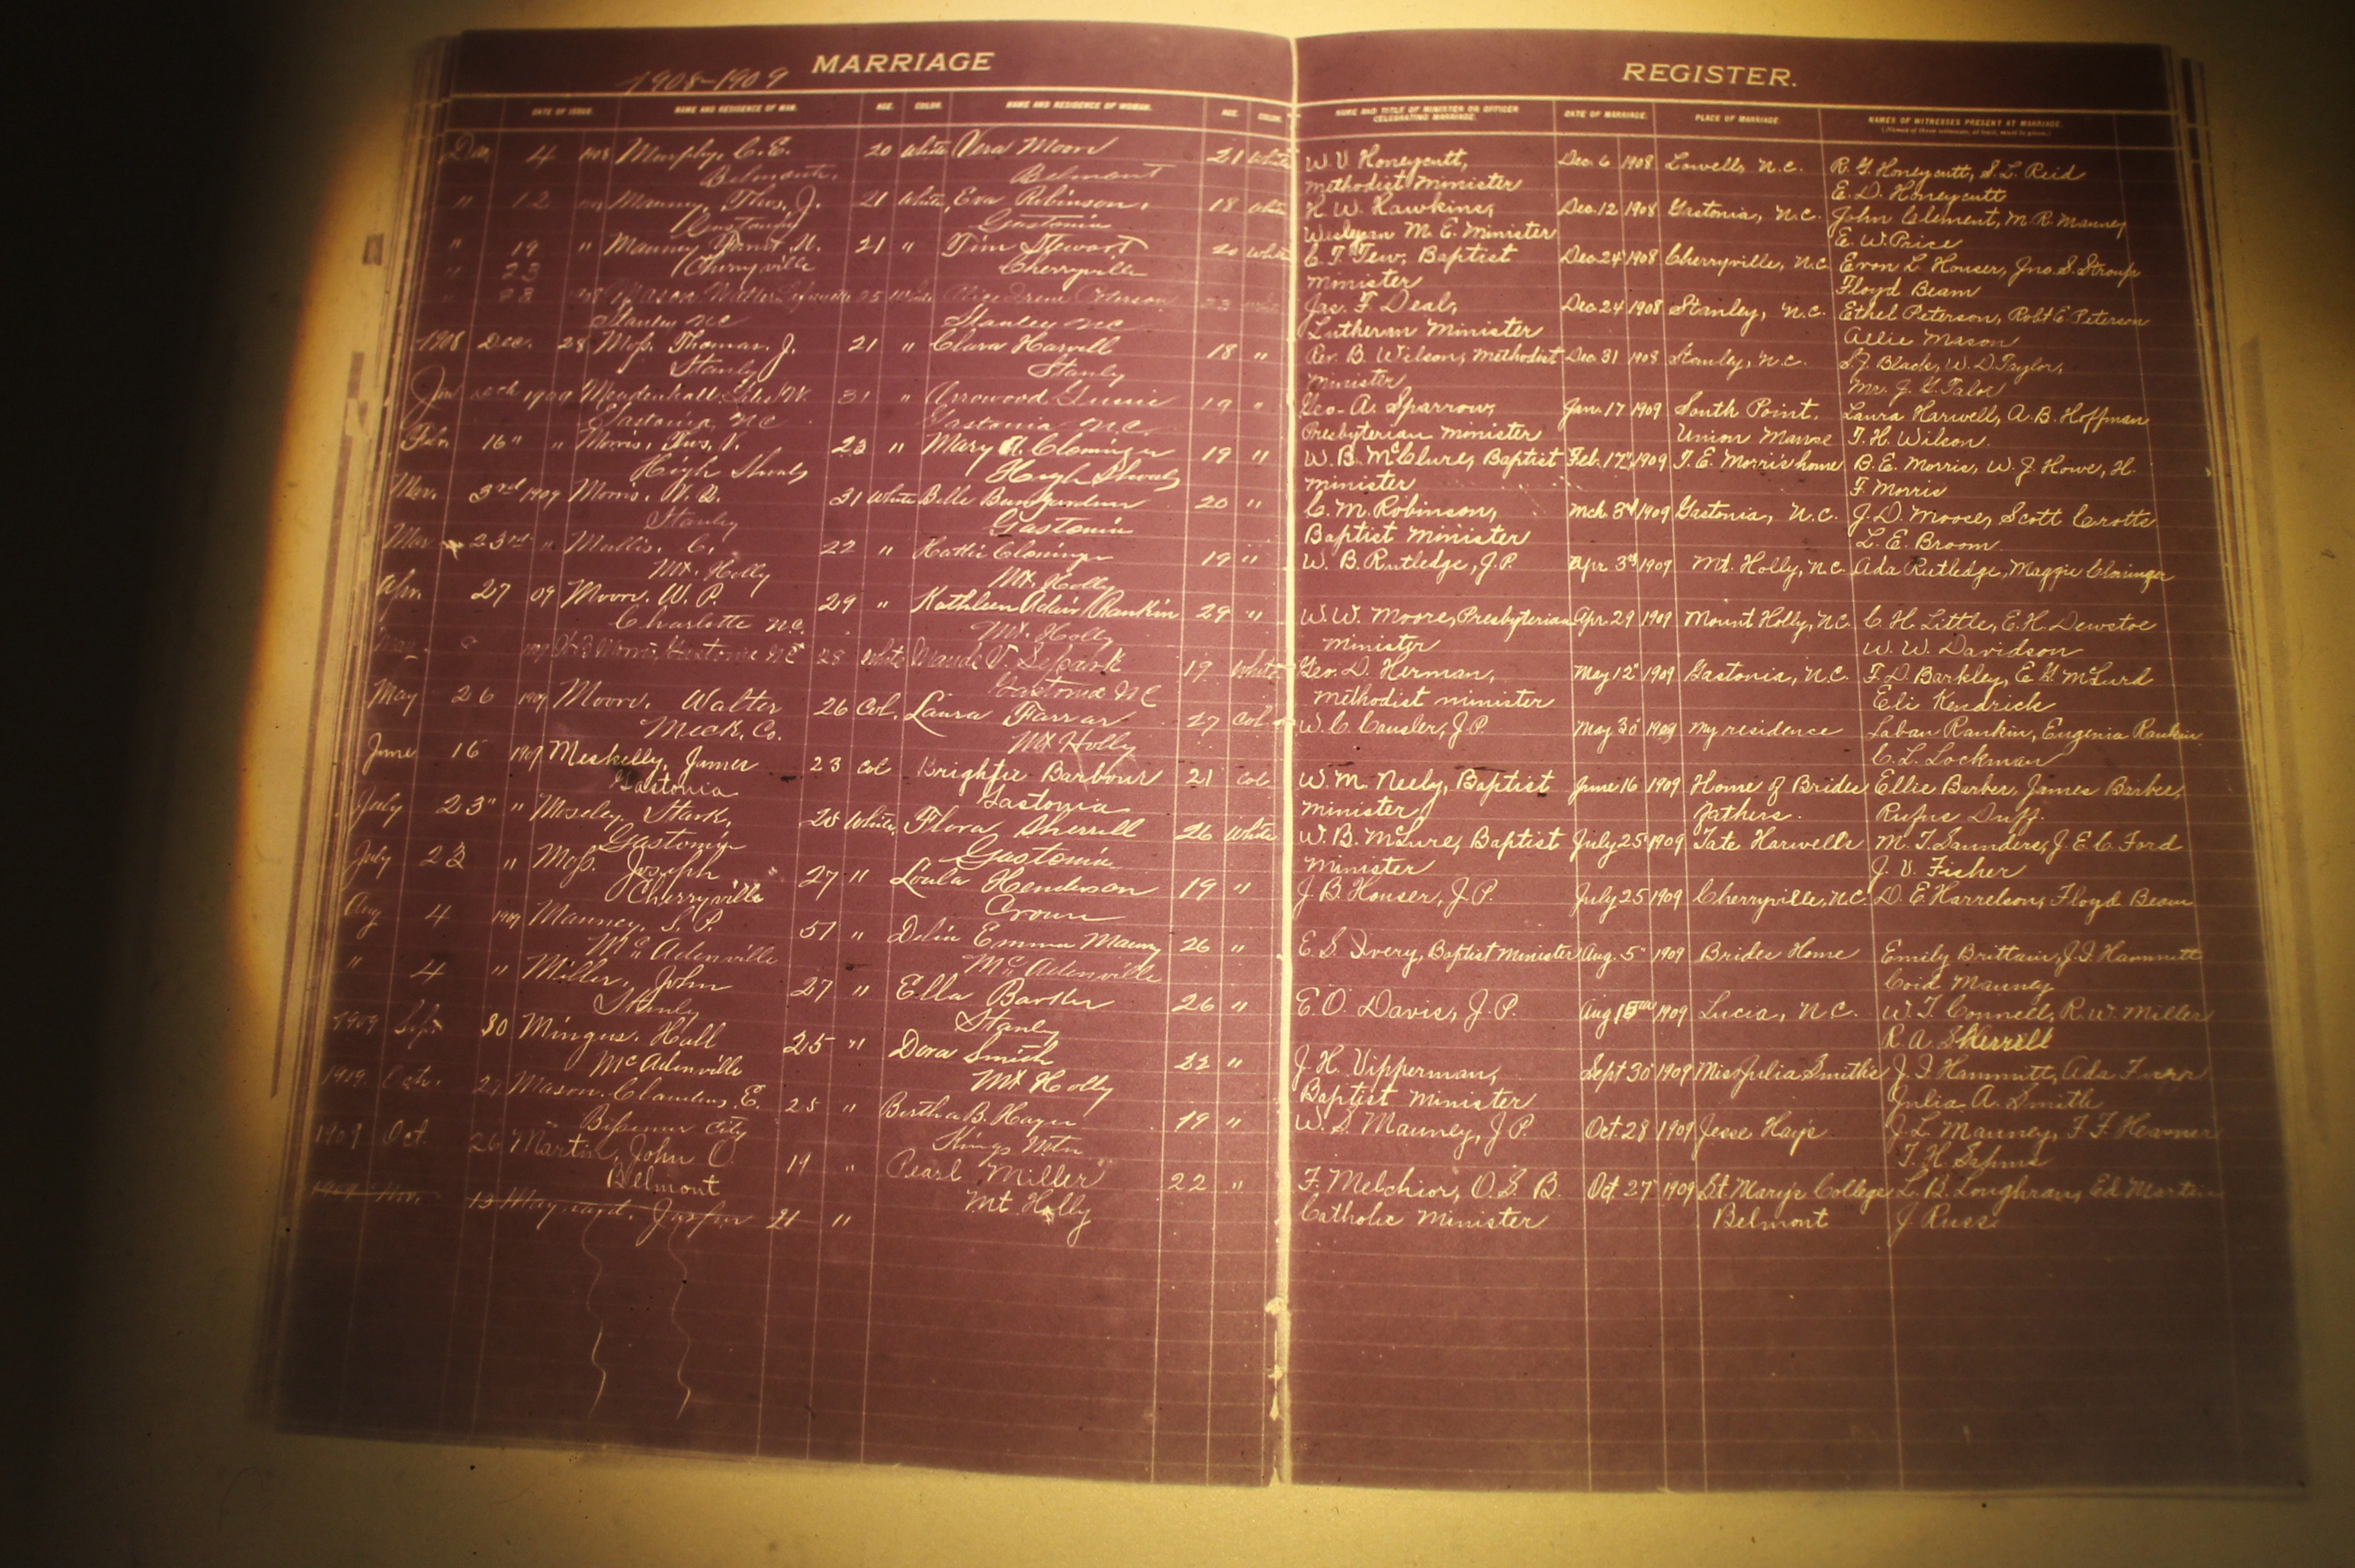 1908-1909 MARRIAGE
DATE OF ISSUE. NAME AND RESIDENCE OF MAN. AGE. COLOR. NAME AND RESIDENCE OF WOMAN. AGE. COLOR.
Dec. 4 1908 Murphy, C. E. 20 White Vera Moon 21 White
Belmont. Belmont
" 12 Mauney, Thos. J. 21 White, Eva Robinson, 18 White
Gastonia Gastonia
" 19 " Mauney M. 21 " Stewart 20 White
Cherryville Cherryville
" 23
" 23 1908 Mason Lafayette 25 White Alice Irene Peterson 23 White
Stanley NC Stanley NC
1908 Dec. 28 Moss. Thomas. J. 21 " Clara Harvell 18 "
Stanly Stanly
Jan 1909 Mendenhall W. 31 " Arrowood Gussie 19 "
Gastonia, NC Gastonia N.C.
Feb. 16" " Morris, Thos, V. 23 " Mary A. Cloninger 19 "
High Shoals High Shoals
Mar. 3rd 1909 Morris. W. D. 31 White Belle Bumgardner 20 "
Stanly Gastonia
Mar 23rd " Mullis. C. 22 " Hattie Cloninger 19 "
Mt. Holly Mt. Holly
Apr. 27 09 Moore. W. P. 29 " Kathleen Adair Rankin 29 "
Charlotte N.C. Mt. Holly
May. 8 1909 Morris, Gastonia NC 28 White Maude V. Separk 19 White
Gastonia NC
May 26 1909 Moore. Walter 26 Col. Laura Farrar 27 Col
Meck. Co. Mt Holly
June 16 1909 Meskelly, James 23 Col Brightie Barbour 21 Col
Gastonia Gastonia
July 23" " Moseley, Stark, 28 White Flora Sherrill 26 White
Gastonia Gastonia
July 23 " Moss. Joseph 27 " Loula Henderson 19 "
Cherryville Crown
Aug 4 1909 Mauney, S. P. 51 " Delia Emma Maury 26 "
McAdenville McAdenville
" 4 " Miller, John 27 " Ella Barker 26 "
Stanly Stanly
1909 Sept 30 Mingus. Hall 25 " Dora Smith 22 "
McAdenville Mt Holly
1909. Oct. 27 Mason. Claudius, E. 25 " Bertha B. Hager 19 "
Bessemer City Kings Mtn
1909 Oct. 26 Martin, John O. 19 " Pearl Miller 22 "
Belmont Mt. Holly
1909 Nov. 13 Maynard. 21 "
REGISTER.
NAME AND TITLE OF MINISTER OR OFFICER CELEBRATING MARRIAGE. DATE OF MARRIAGE. PLACE OF MARRIAGE. NAMES OF WITNESSES PRESENT AT MARRIAGE.
(Names of three witnesses, at least, must be given.)
W. V. Honeycutt, Dec. 6 1908 Lowell, N.C. R. G. Honeycutt, S. L. Reid
Methodist Minister E. D. Honeycutt
H. W. Hawkins, Dec. 12 1908 Gastonia, N.C. John Clement, M. R. Mauney
Wesleyan M. E. Minister E. W. Price
C. T. Tew, Baptist Dec. 24 1908 Cherryville, N.C. Evon L. Houser, Jno. S. Stroup
Minister Floyd Beam
Jas. F. Deal, Dec. 24 1908 Stanley, N.C. Ethel Peterson, Robt E. Peterson
Lutheran Minister Allie Mason
Rev. B. Wilson, Methodist Dec 31 1908 Stanley, N.C. S. J. Black, W. D. Taylor,
Minister Mr. J. G.
Geo. A. Sparrow, Jan. 17 1909 South Point, Laura Harwell, A. B. Hoffman
Presbyterian Minister Union Manse T. H. Wilson.
W. B. McClure, Baptist Feb. 17" 1909 T. E. Morris home B. E. Morris, W. J. Howe, H.
Minister F. Morris
C. M. Robinson, Mch. 3rd 1909 Gastonia, N.C. J. D. Moose, Scott Crotts
Baptist Minister L. E. Broom
W. B. Rutledge, J. P. Apr. 3rd 1909 Mt. Holly, N.C. Ada Rutledge, Maggie Cloninger
W. W. Moore, Presbyterian Apr. 29 1909 Mount Holly, N.C. C. H. Little, E. H. Dewstoe
Minister W. W. Davidson
Geo. D. Herman, May 12" 1909 Gastonia, N.C. F. D. Barkley, E. G. McLurd
Methodist minister Eli Kendrick
W. C. Causler, J. P. May 30 1909 My residence Laban Rankin, Eugenia Rankin
C. L. Lockman
W. M. Neely, Baptist June 16 1909 Home of Brides Ellie Barber, James Barber,
Minister Fathers. Rufus Duff.
W. B. McLure, Baptist July 25" 1909 Tate Harwells M. T. Saunders, J. E. C. Ford
Minister J. V. Fisher
J. B. Houser, J. P. July 25 1909 Cherryville, N.C. D. E. Harrelson, Floyd Beam
E. S. Ivery, Baptist Minister Aug. 5" 1909 Brides Home Emily Brittain, J. I. Hammett
Coid Mauney
E. O. Davis, J. P. Aug 15 1909 Lucia, N.C. W. T. Connell, R. W. Miller
R. A. Sherrill
J. H. Vipperman, Sept 30" 1909 Miss Julia Smith's J. I. Hammitt, Ada
Baptist Minister Julia A. Smith
W. S. Mauney, J. P. Oct. 28 1909 Jesse Hays J. L. Mauney, F. F. Heavner
T. H.
F. Melchior, O. S. B. Oct 27" 1909 St. Mary's College L. B. Loughran, Ed Martin
Catholic Minister Belmont J. Russ